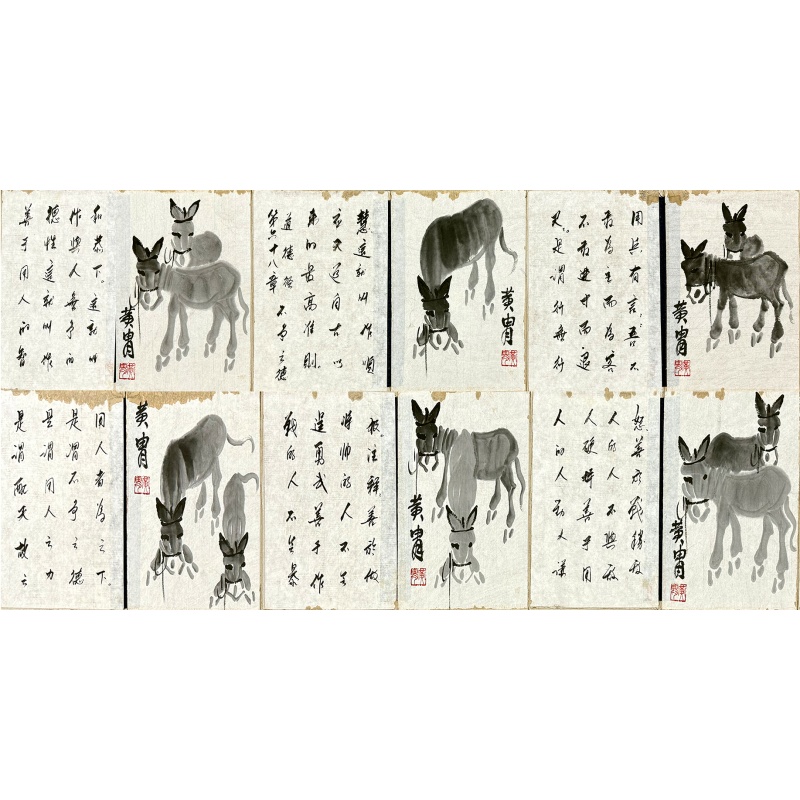 和恭下。這就叫
作與人無爭的
德性這就叫作
善于用人的智
黄胄
慧這就叫作順
天道同古以
來的最高准則。
道德經
第六十八章 不争之德
黄胄
用兵有言:吾不
敢為主而為客
不敢進寸而退
尺。是謂行無行
黄胄
用人者為之下。
是謂不争之德
是謂用人之力
是謂配天故之
黄胄
極。注釋善於做
將帥的人不去
逞勇武善于作
戰的人不生暴
黄胄
怒善於戰勝敵
人的人不與敵
人硬拼善于用
人的人對人謙
黄胄